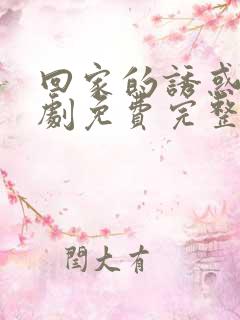 回家的誘惑
劇免費完整
閆大有